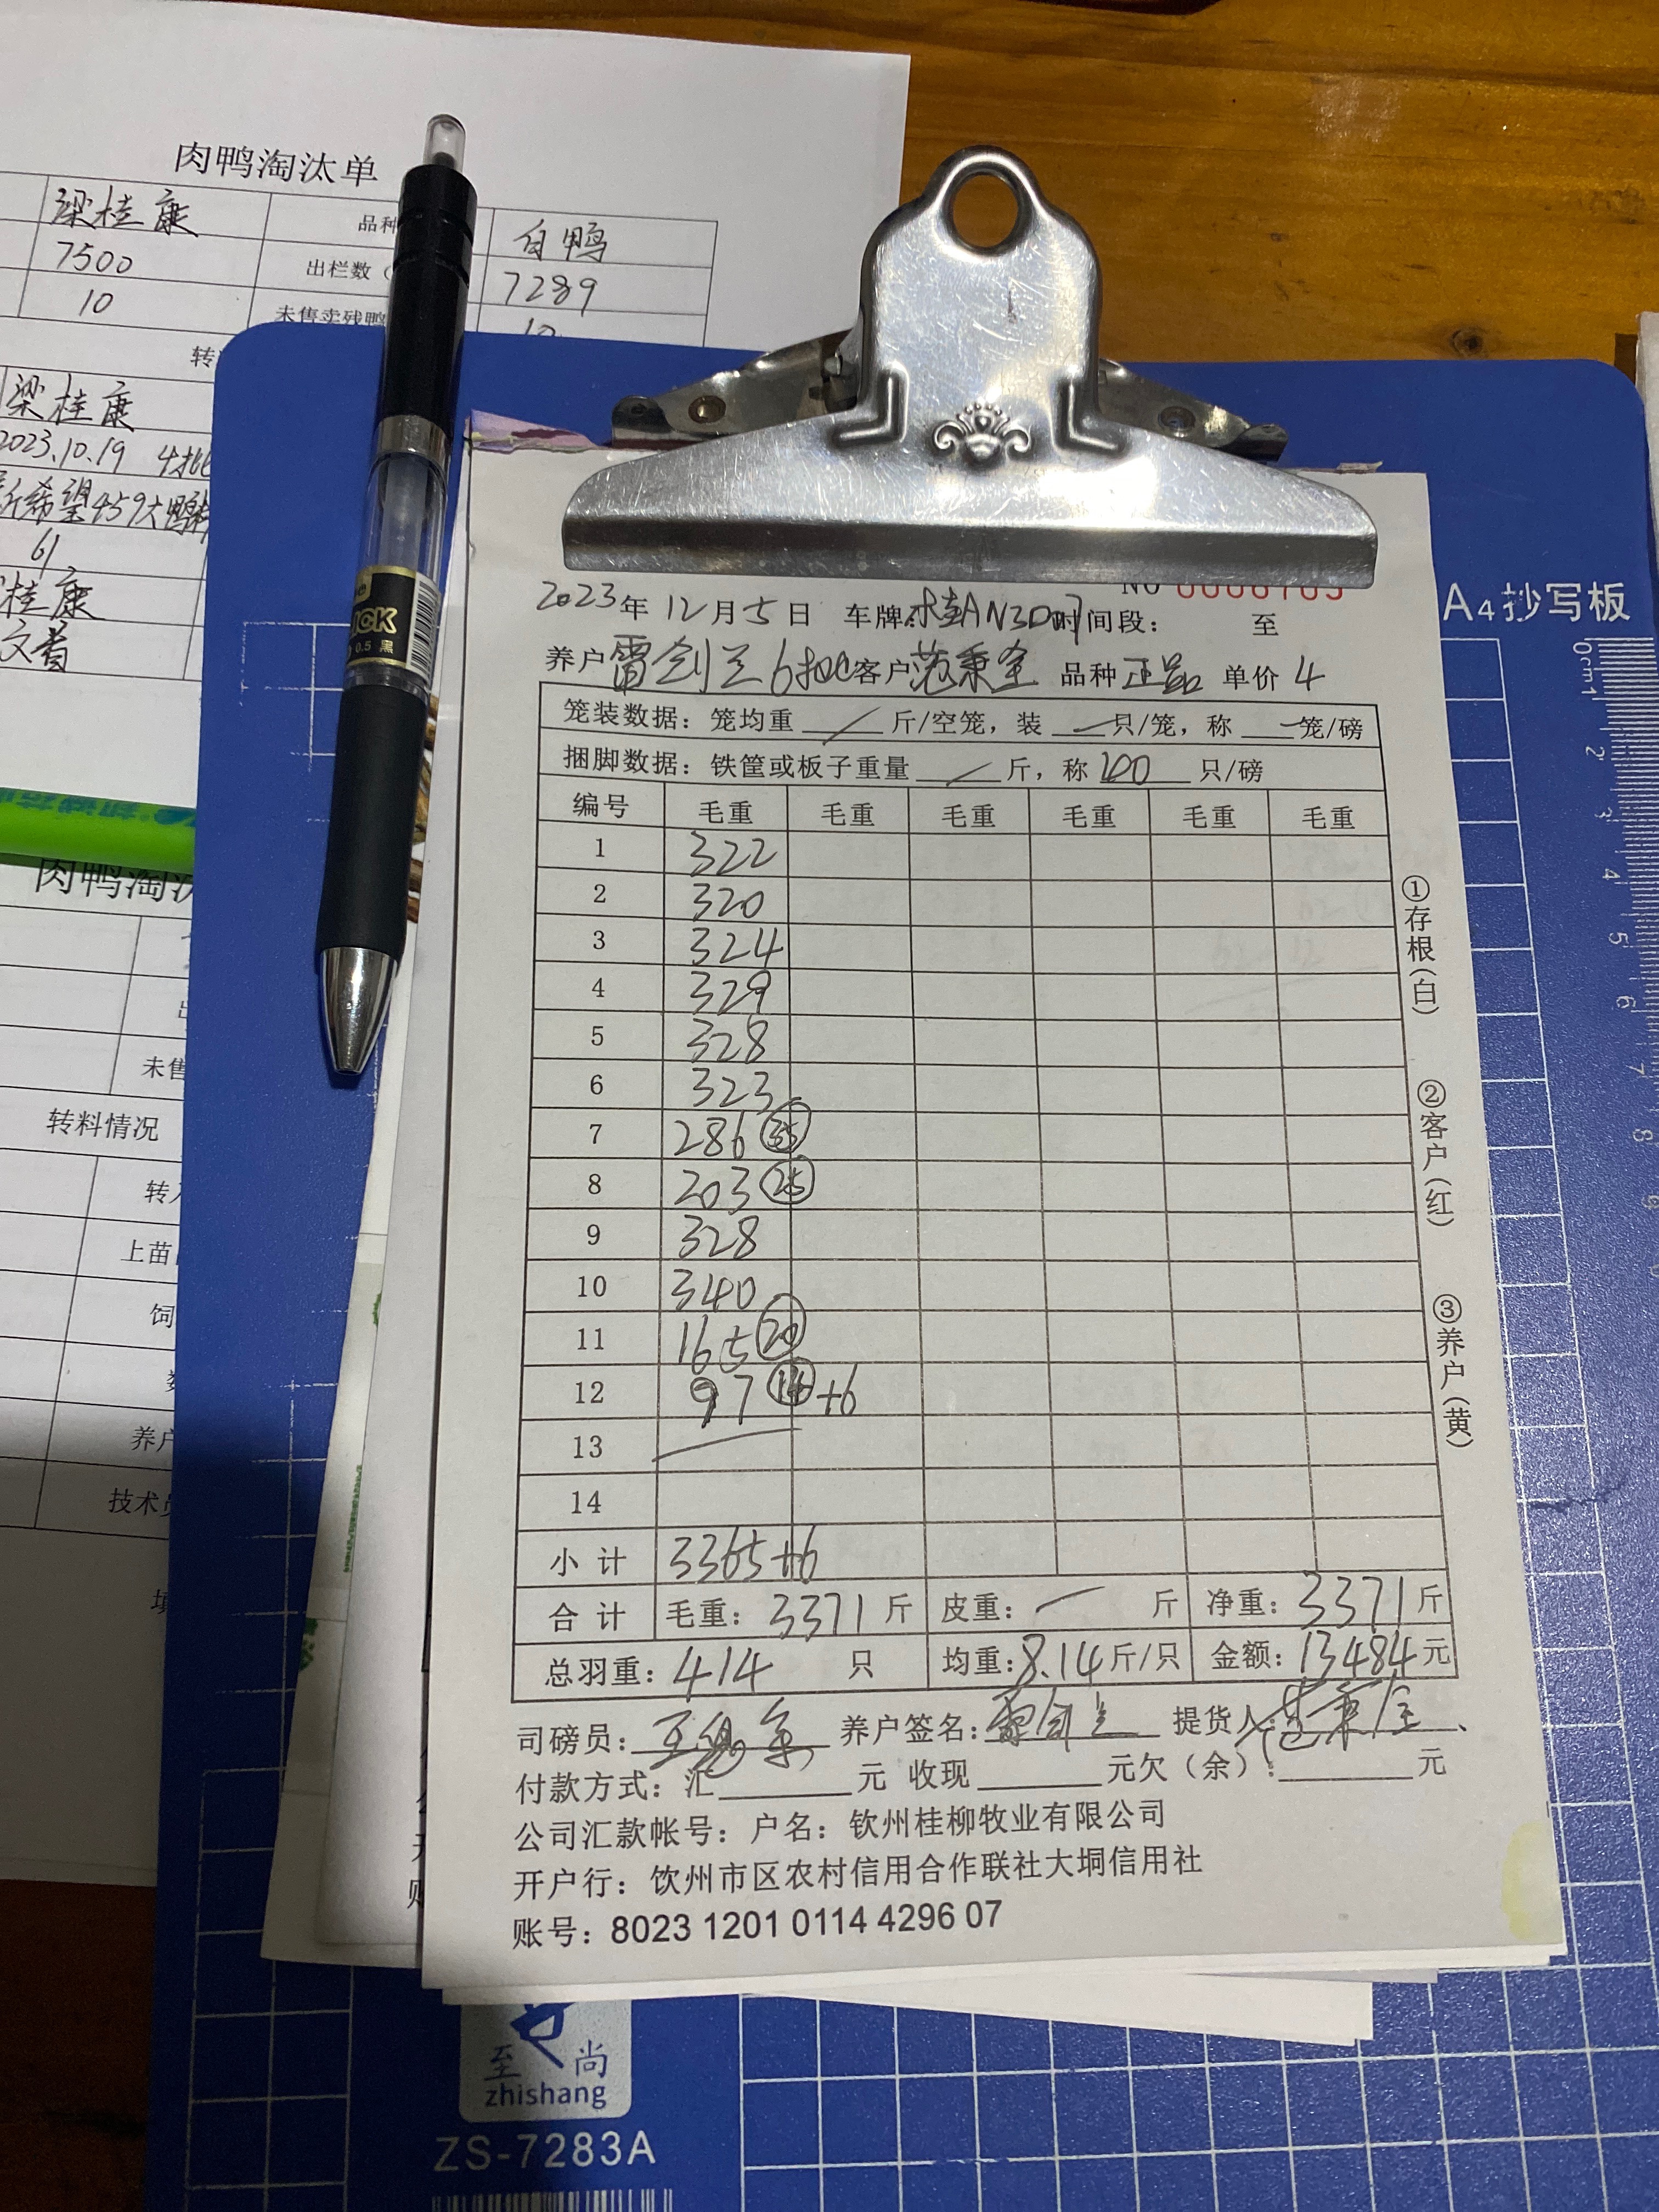 肉鸭淘汰单
梁桂康 品种 白鸭
7500 出栏数( 7289
10 未售卖残鸭 10
转
梁桂康
2023.10.19 4批
新希望459大鸭料
61
桂康
文着
0.5 黑
A4抄写板
NO 0006705
2023年 12月5日 车牌: 桂AN3D 时间段: 至
养户 雷剑兰 6批 客户 范秉全 品种 正品 单价 4
笼装数据: 笼均重 / 斤/空笼, 装 — 只/笼, 称 — 笼/磅
捆脚数据: 铁筐或板子重量 / 斤, 称 40 只/磅
编号 毛重 毛重 毛重 毛重 毛重 毛重
1 322
2 320
3 324
4 329
5 328
6 323
7 286 35
8 203 25
9 328
10 340
11 165 20
12 97 14 +6
13
14
小计 3365+6
合计 毛重: 3371 斤 皮重: — 斤 净重: 3371 斤
总羽重: 414 只 均重: 8.14 斤/只 金额: 13484 元
司磅员: 养户签名: 雷剑兰 提货人: 范秉全
付款方式: 汇 元 收现 元欠(余): 元
公司汇款帐号: 户名: 钦州桂柳牧业有限公司
开户行: 钦州市区农村信用合作联社大垌信用社
账号: 8023 1201 0114 4296 07
①存根(白)
②客户(红)
③养户(黄)
0cm1 2 3 4 5 6 7 8 9
肉鸭淘汰
未售
转料情况
转入
上苗
饲
数
养户
技术员
填
至尚
zhishang
ZS-7283A